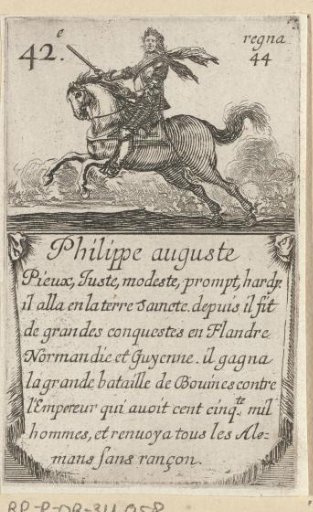 42.e
regna
44
Philippe auguste
Pieux, Juste, modeste, prompt, hardy.
il alla en la terre Saincte. depuis il fit
de grandes conquestes en Flandre
Normandie et Guyenne. il gagna
la grande bataille de Bouines contre
l'Empereur qui auoit cent cinqte. mil
hommes, et renuoya tous les Ale-
mans sans rançon.
RP-P-OB-34.058